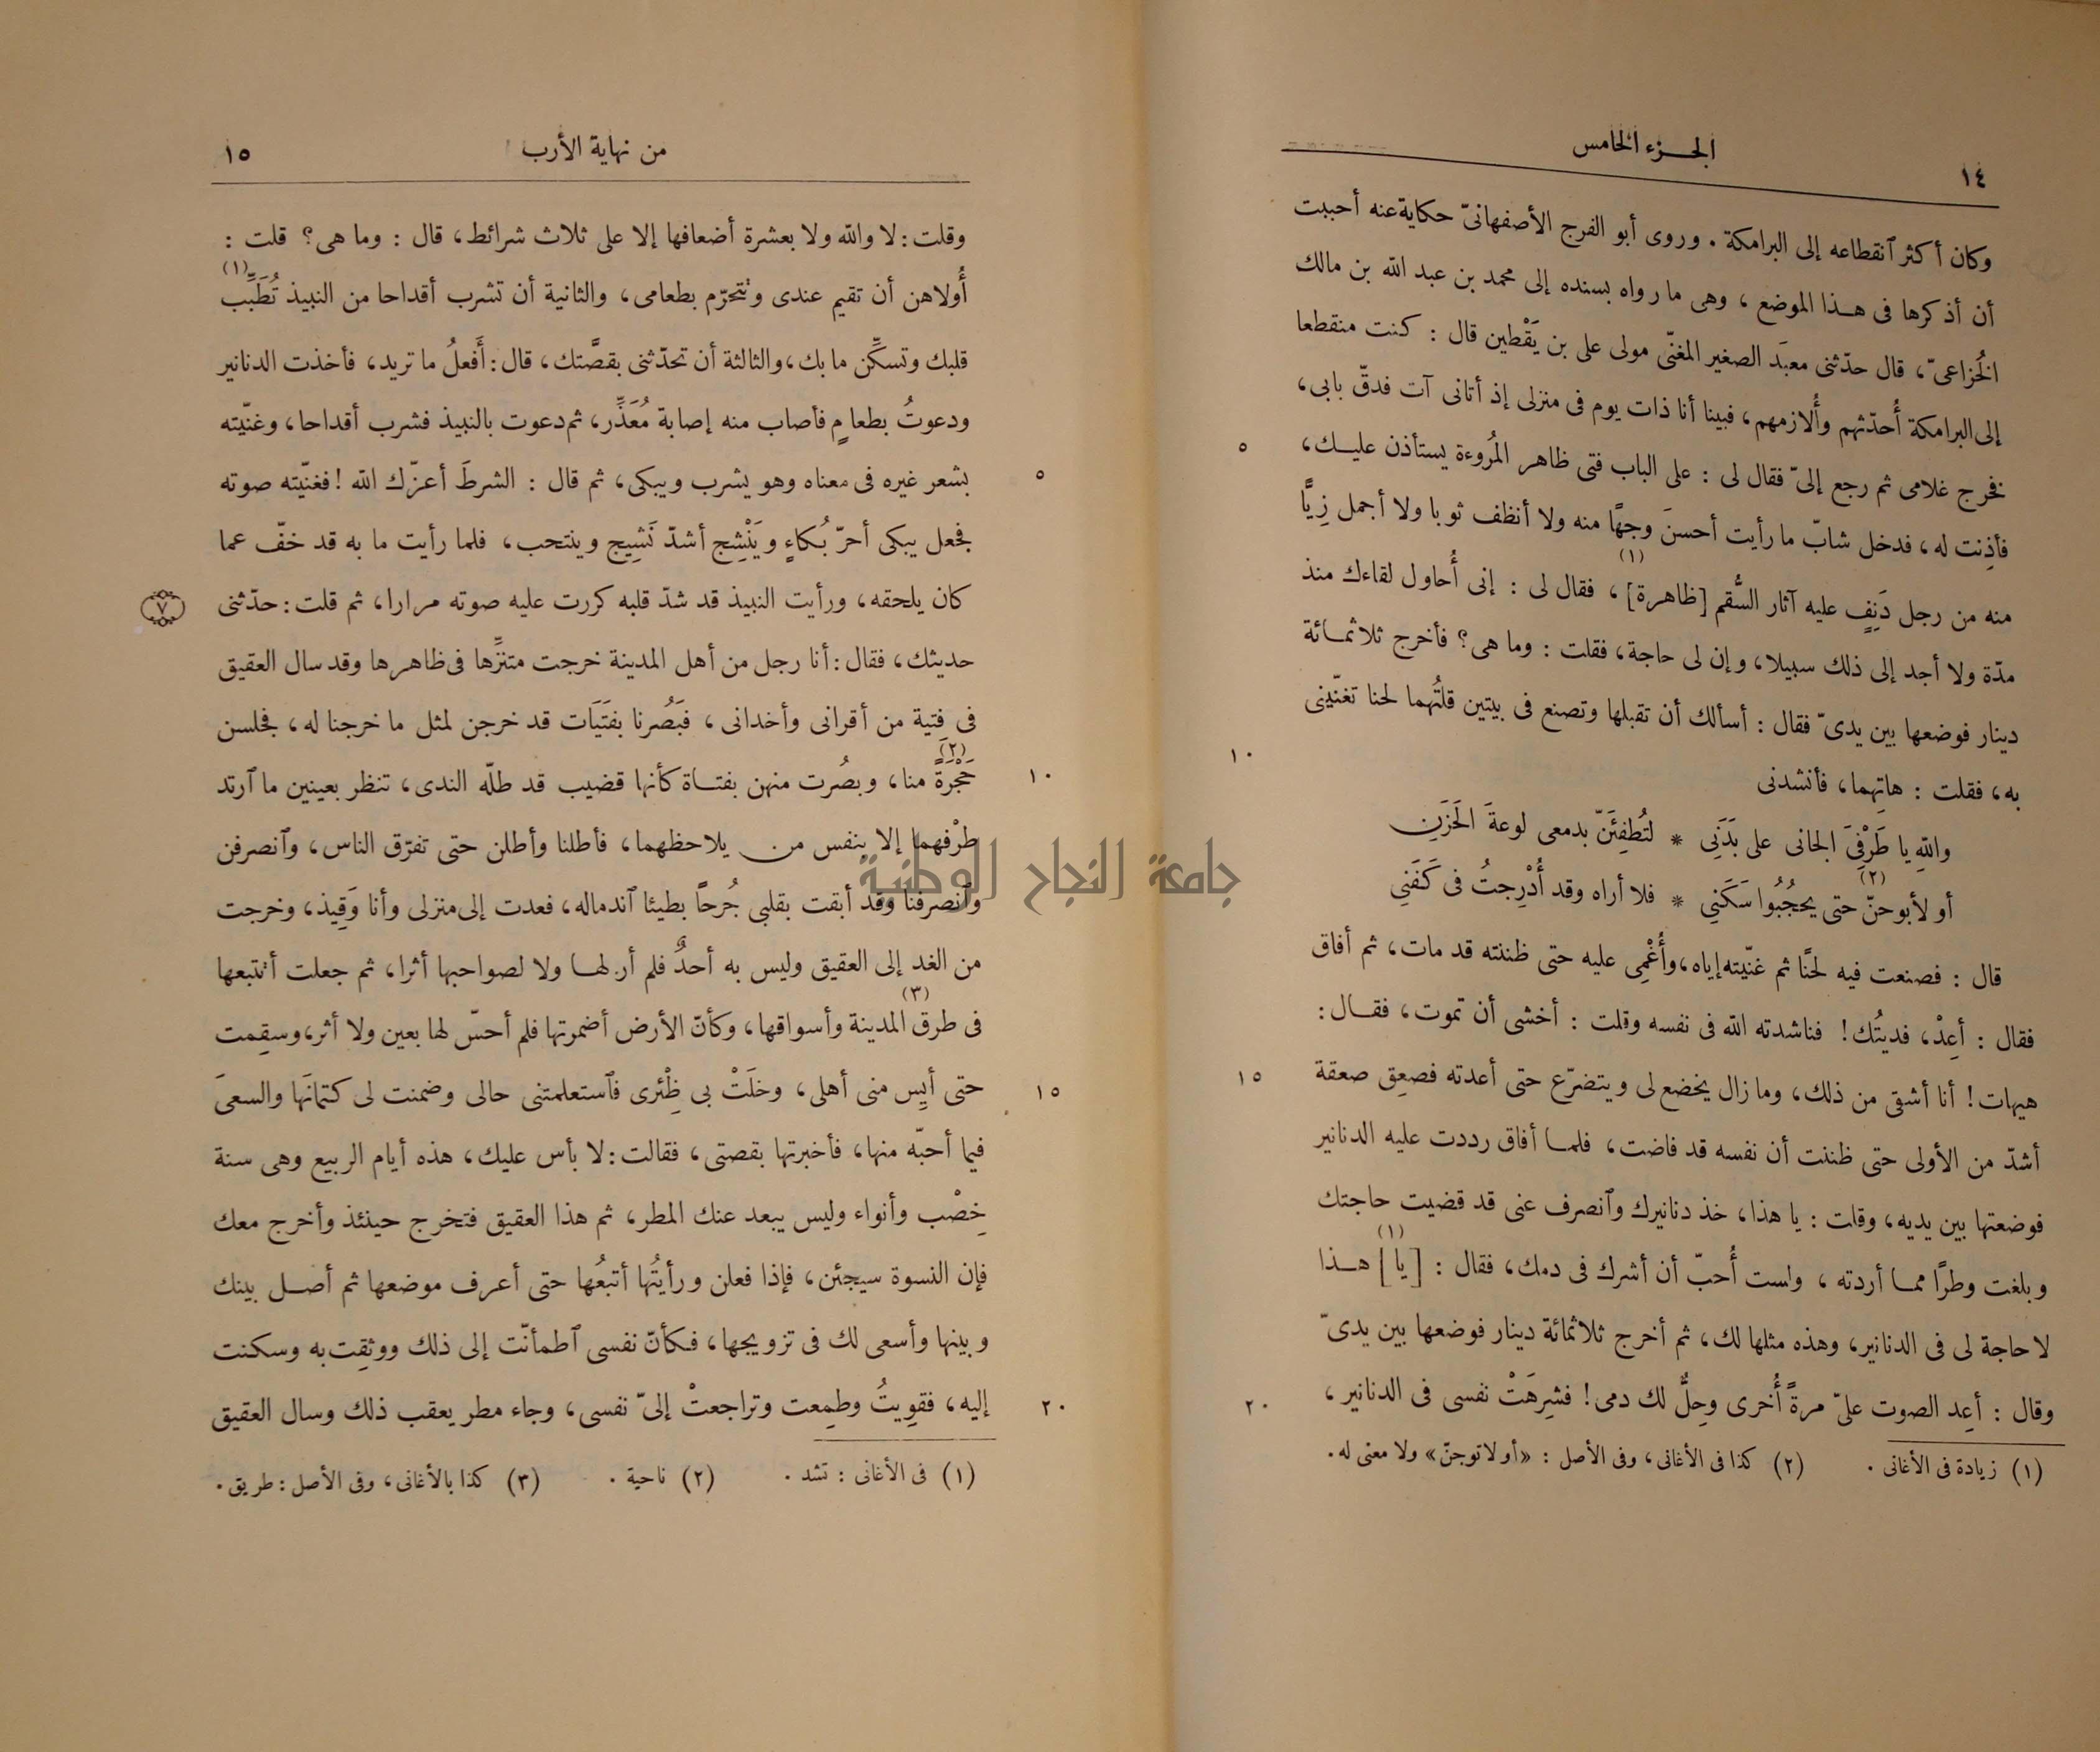 الجزء الخامس
١٤
وكان أكثر ٱنقطاعه إلى البرامكة . وروى أبو الفرج الأصفهانىّ حكاية عنه أحببت
أن أذكرها فى هذا الموضع ، وهى ما رواه بسنده إلى محمد بن عبد الله بن مالك
الخُزاعىّ ، قال حدّثنى معبَد الصغير المغنّى مولى على بن يَقْطين قال : كنت منقطعا
إلى البرامكة أُحدّثهم وأُلازمهم ، فبينا أنا ذات يوم فى منزلى إذ أتانى آت فدقّ بابى ،
٥
فخرج غلامى ثم رجع إلىّ فقال لى : على الباب فتى ظاهر المُروءة يستأذن عليك ،
فأذِنت له ، فدخل شابّ ما رأيت أحسنَ وجهًا منه ولا أنظف ثوبا ولا أجمل زِيًّا
منه من رجل دَنِفٍ عليه آثار السُّقم [ظاهرة](١) ، فقال لى : إنى أُحاول لقاءك منذ
مدّة ولا أجد إلى ذلك سبيلا ، وإن لى حاجة ، فقلت : وما هى؟ فأخرج ثلاثمائة
دينار فوضعها بين يدىّ فقال : أسألك أن تقبلها وتصنع فى بيتين قلتُهما لحنا تغنّينى
١٠
به ، فقلت : هاتِهما ، فأنشدنى
واللهِ يا طَرْفِىَ الجانى على بَدَنِى * لتُطفِئَنّ بدمعى لوعةَ الحَزَنِ
أو لأبوحنّ(٢) حتى يحجُبُوا سَكَنِى * فلا أراه وقد أُدْرِجتُ فى كَفَنِى
قال : فصنعت فيه لحنًا ثم غنّيته إياه ، وأُغْمِى عليه حتى ظننته قد مات ، ثم أفاق
فقال : أعِدْ ، فديتُك ! فناشدته الله فى نفسه وقلت : أخشى أن تموت ، فقال :
١٥
هيهات ! أنا أشقى من ذلك ، وما زال يخضع لى ويتضرّع حتى أعدته فصعِق صعقة
أشدّ من الأولى حتى ظننت أن نفسه قد فاضت ، فلما أفاق رددت عليه الدنانير
فوضعتها بين يديه ، وقلت : يا هذا ، خذ دنانيرك وٱنصرف عنى قد قضيت حاجتك
وبلغت وطرًا مما أردته ، ولست أُحبّ أن أشرك فى دمك ، فقال : [يا](١) هذا
لا حاجة لى فى الدنانير ، وهذه مثلها لك ، ثم أخرج ثلاثمائة دينار فوضعها بين يدىّ
٢٠
وقال : أعِد الصوت علىّ مرةً أُخرى وحِلٌّ لك دمى ! فشرِهَتْ نفسى فى الدنانير ،
(١) زيادة فى الأغانى . (٢) كذا فى الأغانى ، وفى الأصل : «أولا توجنّ» ولا معنى له .
من نهاية الأرب
١٥
وقلت : لا والله ولا بعشرة أضعافها إلا على ثلاث شرائط ، قال : وما هى؟ قلت :
أُولاهن أن تقيم عندى وتتحرّم بطعامى ، والثانية أن تشرب أقداحا من النبيذ تُطَبِّب(١)
قلبك وتسكِّن ما بك ، والثالثة أن تحدّثنى بقصَّتك ، قال : أَفعلُ ما تريد ، فأخذت الدنانير
ودعوتُ بطعامٍ فأصاب منه إصابة مُعَذِّر ، ثم دعوت بالنبيذ فشرب أقداحا ، وغنّيته
٥
بشعر غيره فى معناه وهو يشرب ويبكى ، ثم قال : الشرطَ أعزّك الله ! فغنّيته صوته
فجعل يبكى أحرّ بُكاءٍ ويَنْشِج أشدّ نَشِيج وينتحب ، فلما رأيت ما به قد خفّ عما
كان يلحقه ، ورأيت النبيذ قد شدّ قلبه كررت عليه صوته مرارا ، ثم قلت : حدّثنى
٧
حديثك ، فقال : أنا رجل من أهل المدينة خرجت متنزِّها فى ظاهرها وقد سال العقيق
فى فتية من أقرانى وأخدانى ، فبَصُرنا بفتَيَات قد خرجن لمثل ما خرجنا له ، فجلسن
١٠
حَجْرَةً(٢) منا ، وبصُرت منهن بفتاة كأنها قضيب قد طلّه الندى ، تنظر بعينين ما ٱرتد
طرْفهما إلا بنفس من يلاحظهما ، فأطلنا وأطلن حتى تفرّق الناس ، وٱنصرفن
وٱنصرفنا وقد أبقت بقلبى جُرحًا بطيئا ٱندماله ، فعدت إلى منزلى وأنا وَقِيذ ، وخرجت
من الغد إلى العقيق وليس به أحدٌ فلم أر لها ولا لصواحبها أثرا ، ثم جعلت أتتبعها
فى طرق(٣) المدينة وأسواقها ، وكأنّ الأرض أضمرتها فلم أحسّ لها بعين ولا أثر ، وسقِمت
١٥
حتى أيِس منى أهلى ، وخلَتْ بى ظِئْرى فٱستعلمتنى حالى وضمنت لى كتمانَها والسعىَ
فيما أحبّه منها ، فأخبرتها بقصتى ، فقالت : لا بأس عليك ، هذه أيام الربيع وهى سنة
خِصْب وأنواء وليس يبعد عنك المطر ، ثم هذا العقيق فتخرج حينئذ وأخرج معك
فإن النسوة سيجئن ، فإذا فعلن ورأيتُها أتبعُها حتى أعرف موضعها ثم أصل بينك
وبينها وأسعى لك فى تزويجها ، فكأنّ نفسى ٱطمأنّت إلى ذلك ووثِقِت به وسكنت
٢٠
إليه ، فقوِيتُ وطمِعت وتراجعتْ إلىّ نفسى ، وجاء مطر يعقب ذلك وسال العقيق
(١) فى الأغانى : تشد . (٢) ناحية . (٣) كذا بالأغانى ، وفى الأصل : طريق .
جامعة النجاح الوطنية